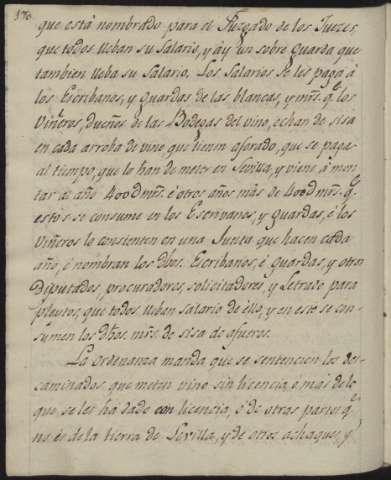 170
que está nombrado para el Juzgado de los Juezes,
que todos lleban su salario, y ay un sobre guarda que
tambien lleba su salario. Los salarios se les paga à
los Escribanos, y guardas de las blancas, y mrs. q.e los
Viñeros, dueños de las Bodegas del vino, echan de sisa
en cada arroba de vino que tienen aforado, que se paga
al tiempo, que lo han de meter en Sevilla, y viene à mon
tar al año 400D mrs. é otros años màs de 400D mrs. q.e
esto se consume en los Escrivanos, y guardas, é los
Viñeros lo consienten en una Junta que hacen cada
año, é nombran los dhos. Escribanos, é guardas, y otros
Diputados, procuradores, solicitadores, y Letrado para
pleytos, que todos lleban salario de ello, y en esto se con-
sumen los dhos. mrs. de sisa de afueros.
La ordenanza manda que se sentencien los des-
caminados, que meten vino sin licencia, é mas de lo
que se les ha dado con licencia, ó de otras partes q.e
no es de la tierra de Sevilla, y de otros achaques, y